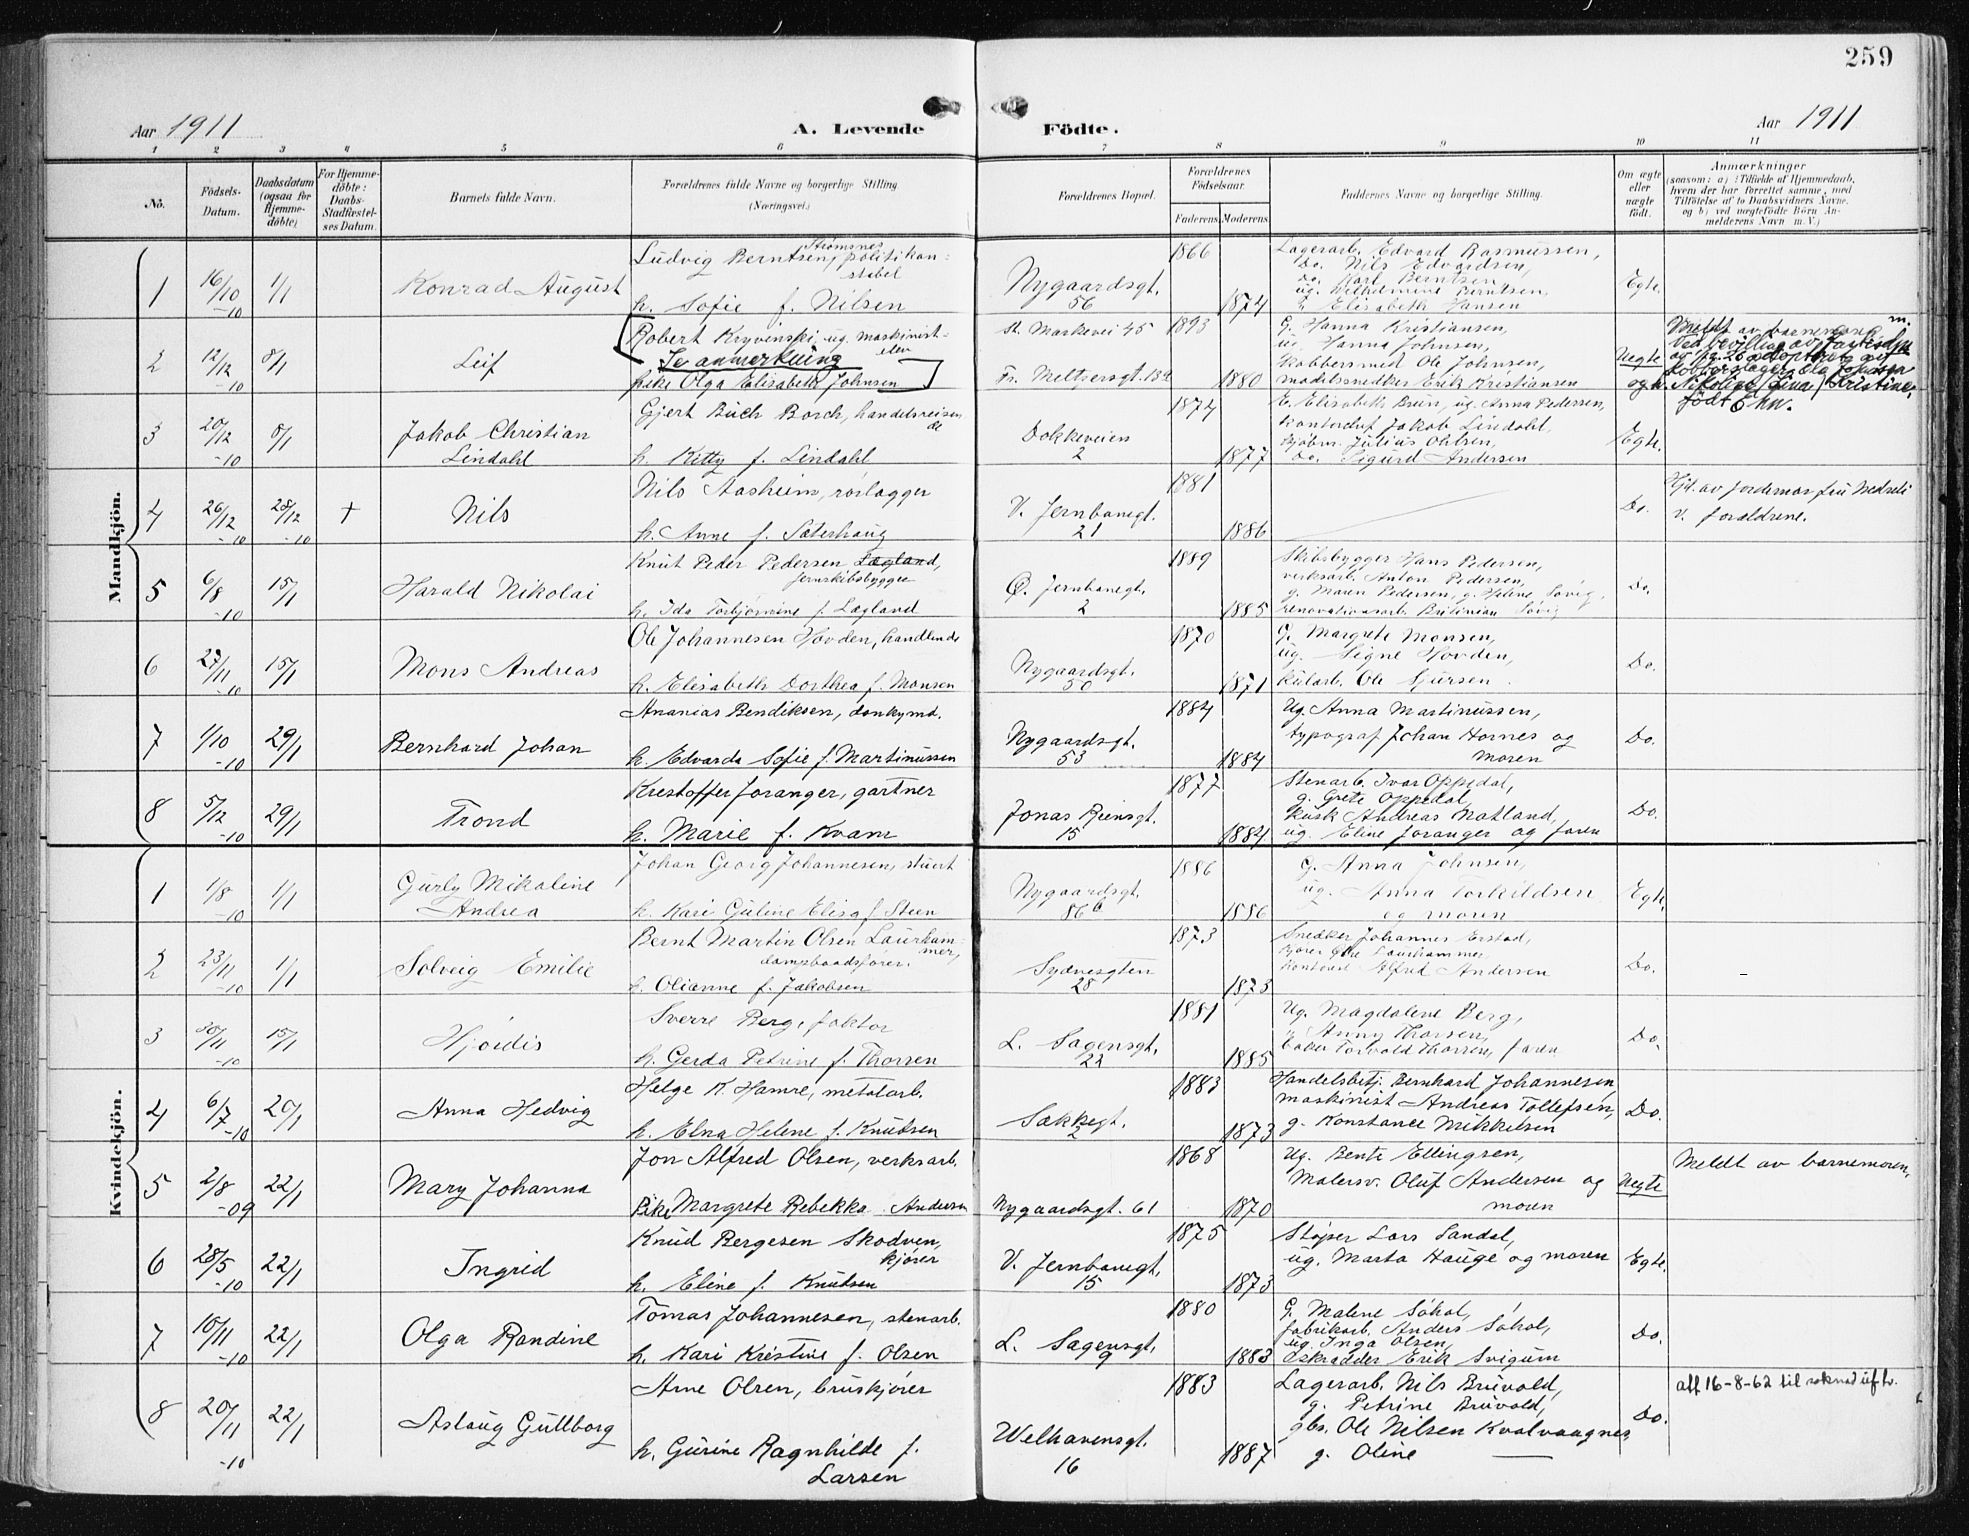 259
Aar 1911
A. Levende
Födte.
Aar 1911
1 2 3 4 5 6 7 8 9 10 11
No.
Födsels-Datum.
Daabsdatum (ogsaa for Hjemmedöbte)
For Hjemmedöbte: Daabs-Stadfæstelses Datum.
Barnets fulde Navn.
Forældrenes fulde Navne og borgerlige Stilling
(Næringsvei.)
Forældrenes Bopæl.
Forældrenes Födselsaar.
Faderens Moderens
Faddernes Navne og borgerlige Stilling.
Om ægte eller uægte födt.
Anmærkninger
(saasom: a) i Tilfælde af Hjemmedaab,
hvem der har forrettet samme, med
Tilföielse af to Daabsvidners Navne.
og b) ved uægtefödte Börn Anmelderens Navn m. V.)
Mandkjön.
1 16/10 -10 1/1 Konrad August
Ludvig Berntsen Strømsnes, politikonstabel
h. Sofie f. Nilsen
Nygaardsgt. 56
1866 1874
Lagerarb. Edvard Rasmussen,
Do. Nils Edvardsen,
Do. Karl Berntsen
ug. Wilhelmine Berntsen,
g. Elisabeth Hansen
Egte.
2 12/12 -10 8/1 Leif
Robert Kryvenski, ug. maskinistelev
Se anmerkning
pike Olga Elisabeth Johnsen
St. Markevei 45
Fr. Meltsersgt. 134
1893 1880
G. Hanna Kristiansen,
ug. Hanna Johnsen,
Kobbersmed Ole Johnsen,
modelsnedker Erik Kristiansen
Uegte
Meldt av barnemoren.
Ved bevilling av
Nikoline Lina Kristine,
født
3 20/12 -10 8/1 Jakob Christian Lindahl
Gjert Buch Borch, handelsreisende
h. Kitty f. Lindahl
Dokkeveien 2
1874 1877
E. Elisabeth Brun, ug. Anna Pedersen,
Kontorchef Jakob Lindahl,
Kjøbm. Julius Ohlsen,
Do. Sigurd Andersen
Egte.
4 26/12 -10 28/12 -10 + Nils
Nils Aasheim, rørlægger
h. Anne f. Sæterhaug
V. Jernbanegt. 21
1881 1886
Do.
Hjd. av jordemor fru Nedreli
v. forældrene.
5 6/8 -10 15/1 Harald Nikolai
Knut Peder Pedersen Lægland, jernskibsbygger
h. Ida Torbjørnine f. Lægland
Ø. Jernbanegt. 2
1889 1885
Skibsbygger Hans Pedersen,
verksarb. Anton Pedersen,
g. Maren Pedersen, g. Helene Søvig,
renovationsarb. Søvig
Do.
6 27/11 -10 15/1 Mons Andreas
Ole Johannesen Hovden, handlende
h. Elisabeth Dorthea f. Monsen
Nygaardsgt. 50
1870 1871
G. Margrete Monsen,
ug. Signe Hovden,
Kularb. Ole Sjursen.
Do.
7 1/10 -10 29/1 Bernhard Johan
Ananias Bendiksen, donkymd.
h. Edvarda Sofie f. Martinussen
Nygaardsgt. 53
1884 1884
Ug. Anna Martinussen,
typograf Johan Hornes og
moren
Do.
8 5/12 -10 29/1 Trond
Krestoffer Joranger, gartner
h. Marie f. Kvam
Jonas Reinsgt. 15
1877 1884
Stenarb. Ivar Oppedal,
g. Grete Oppedal,
Kusk Andreas Natland,
ug. Eline Joranger og faren
Do.
Kvindekjön.
1 1/8 -10 1/1 Gurly Mikaline Andrea
Johan Georg Johannesen, stuert
h. Kari Guline Elisa f. Steen
Nygaardsgt. 86 b
1886 1886
G. Anna Johnsen,
ug. Anna Torkildsen
og moren
Egte.
2 23/11 -10 1/1 Solveig Emilie
Bernt Martin Olsen Laurhammer, dampbaadsfører.
h. Olianne f. Jakobsen
Sydnesgten 28
1873 1873
Snedker Johannes Erstad,
Laurhammer,
Alfred Andersen
Do.
3 30/11 -10 15/1 Hjørdis
Sverre Berg, faktor
h. Gerda Petrine f. Thorsen
L. Sagensgt. 22
1881 1885
Ug. Magdalene Berg,
" Anny Thorsen,
Torvald Thorsen, faren
Do.
4 6/7 -10 20/1 Anna Hedvig
Helge K. Hamre, metalarb.
h. Elna Helene f. Knutsen
Sækkegt. 2
1883 1873
Handelsbetj. Bernhard Johannesen,
maskinist Andreas Tollefsen,
g. Konstance Mikkelsen
Do.
5 2/8 -09 22/1 Mary Johanna
Jon Alfred Olsen, verksarb.
Pike Margrete Rebekka Andersen
Nygaardsgt. 61
1868 1870
Ug. Bente Ellingsen,
Malersv. Oluf Andersen og
moren
Uegte
Meldt av barnemoren.
6 28/5 -10 22/1 Ingrid
Knud Bergesen Skodven, kjører
h. Eline f. Knutsen
V. Jernbanegt. 15
1875 1873
Støper Lars Sandal,
ug. Marta Hauge og moren
Egte.
7 10/11 -10 22/1 Olga Randine
Tomas Johannesen, stenarb.
h. Kari Kristine f. Olsen
L. Sagensgt. 9
1880 1883
G. Malene Søhol,
fabrikarb. Anders Søhol,
ug. Inga Olsen,
Erik Svigum
Do.
8 20/11 -10 22/1 Aslaug Gullborg
Arne Olsen, bruskjører
h. Gurine Ragnhilde f. Larsen
Welhavensgt. 16
1883 1887
Lagerarb. Nils Bruvold,
g. Petrine Bruvold,
gbs. Ole Nilsen Kvalvaagnes
g. Oline —
Do.
att 16-8-62 til